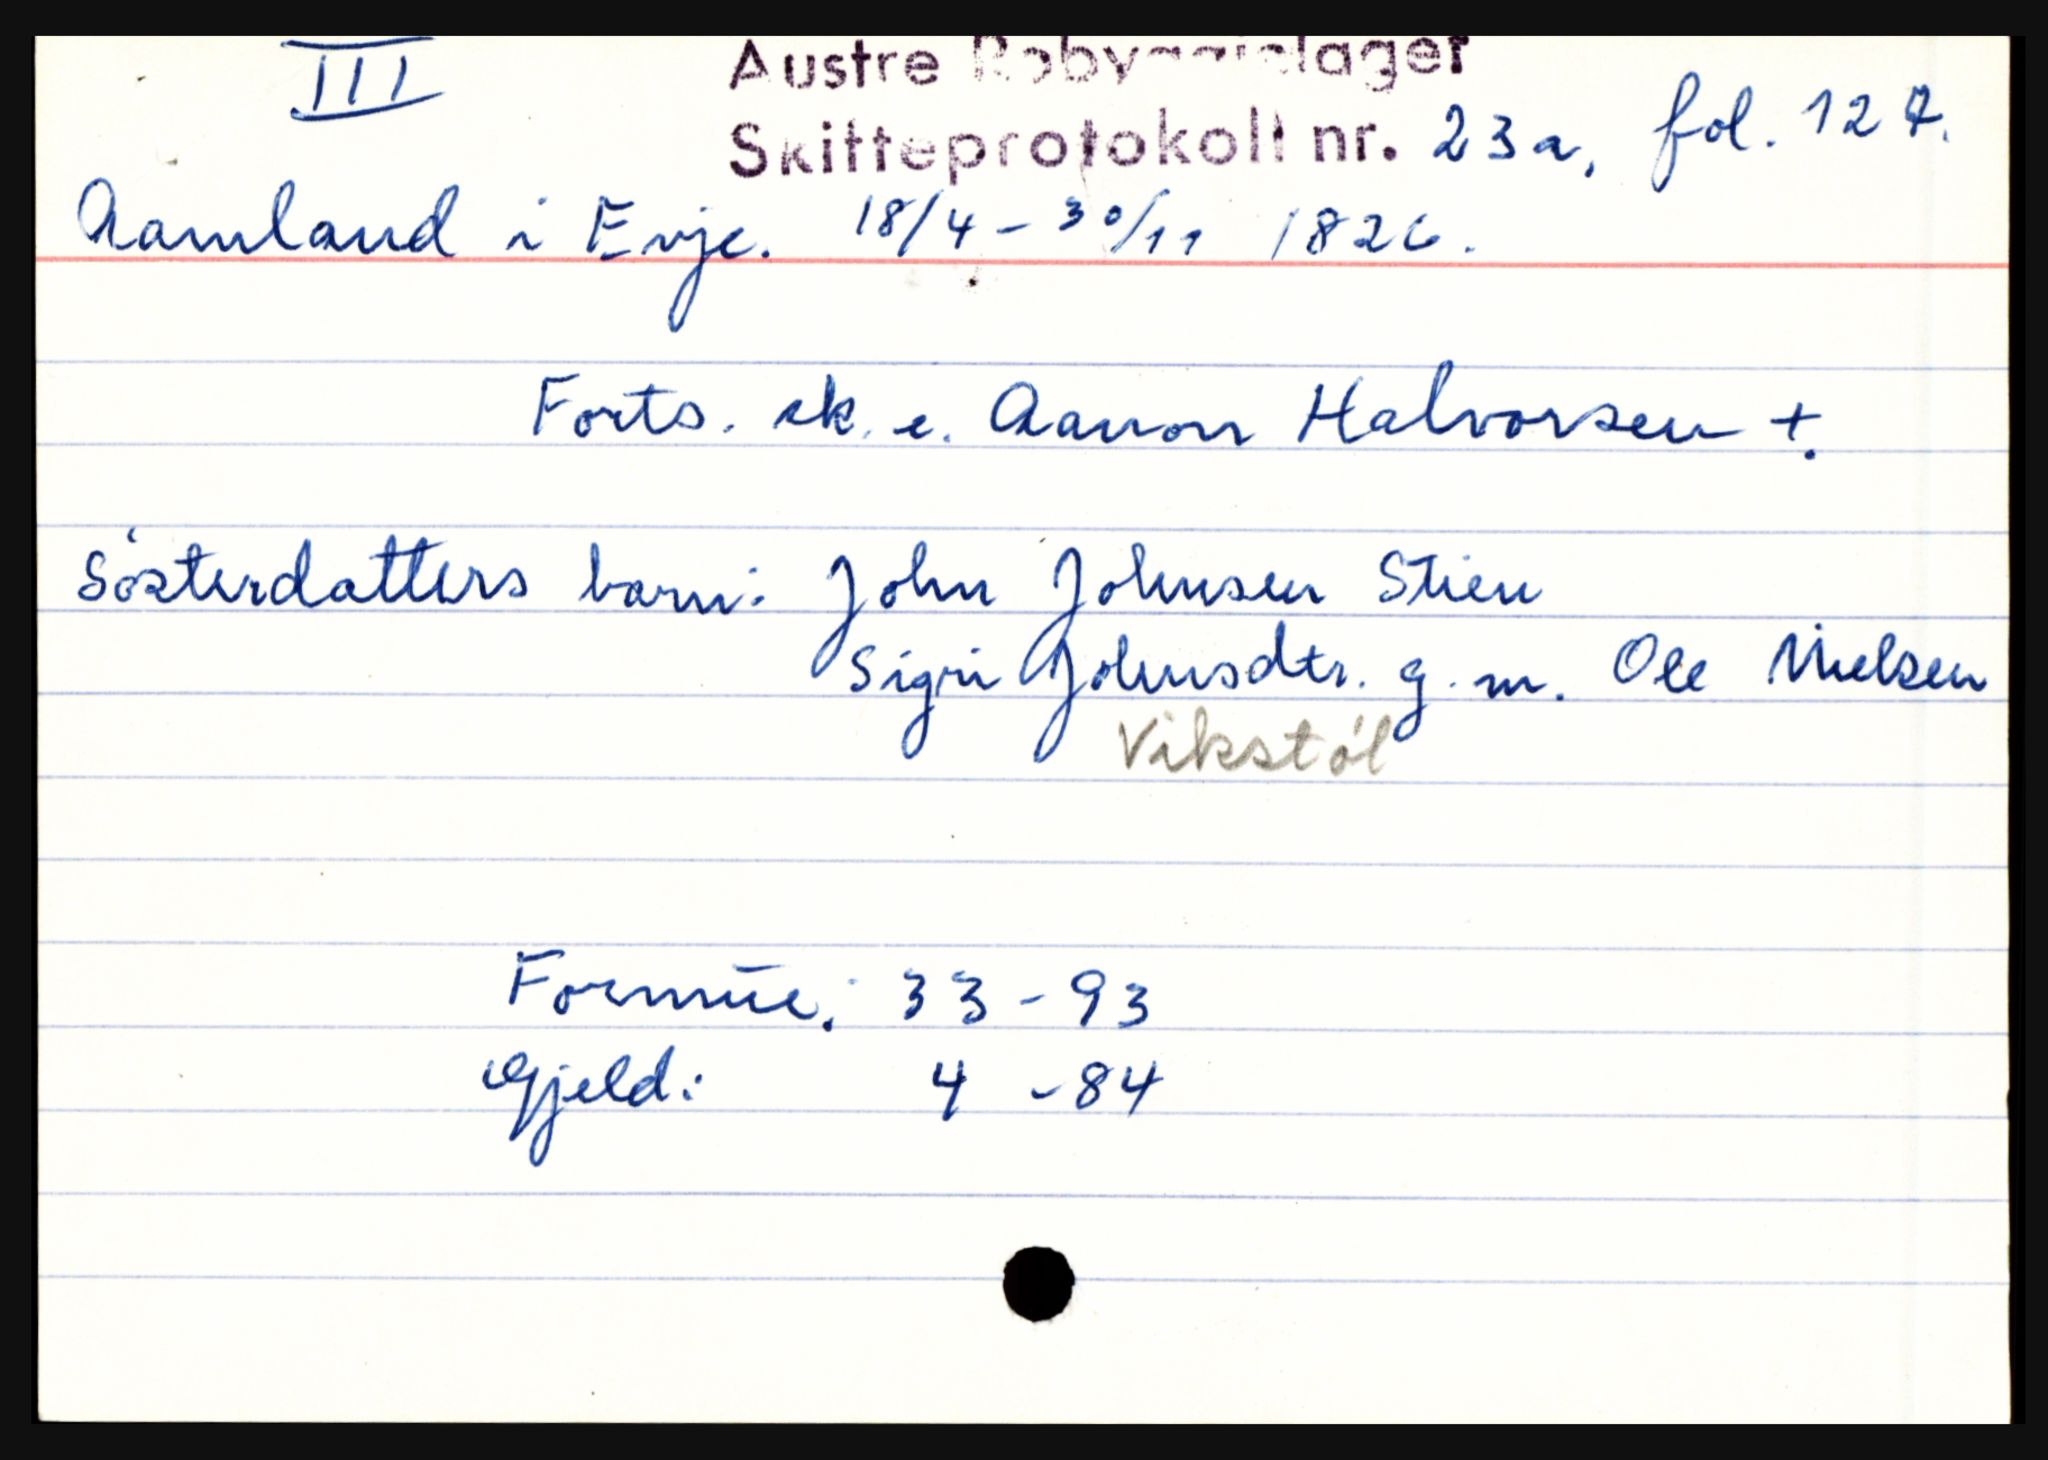 III
Austre Robyggjelager
Skifteprotokoll nr. 23a, fol. 127.
Aamland i Evje. 18/4 - 30/11 1826.
Forts. sk. e. Aanon Halvorsen +.
Sósterdatters barn: John Johnsen Stien
Sigri Johnsdtr. g. m. Ole Nielsen
Vikstøl
Formue: 33-93
Gjeld: 4 -84